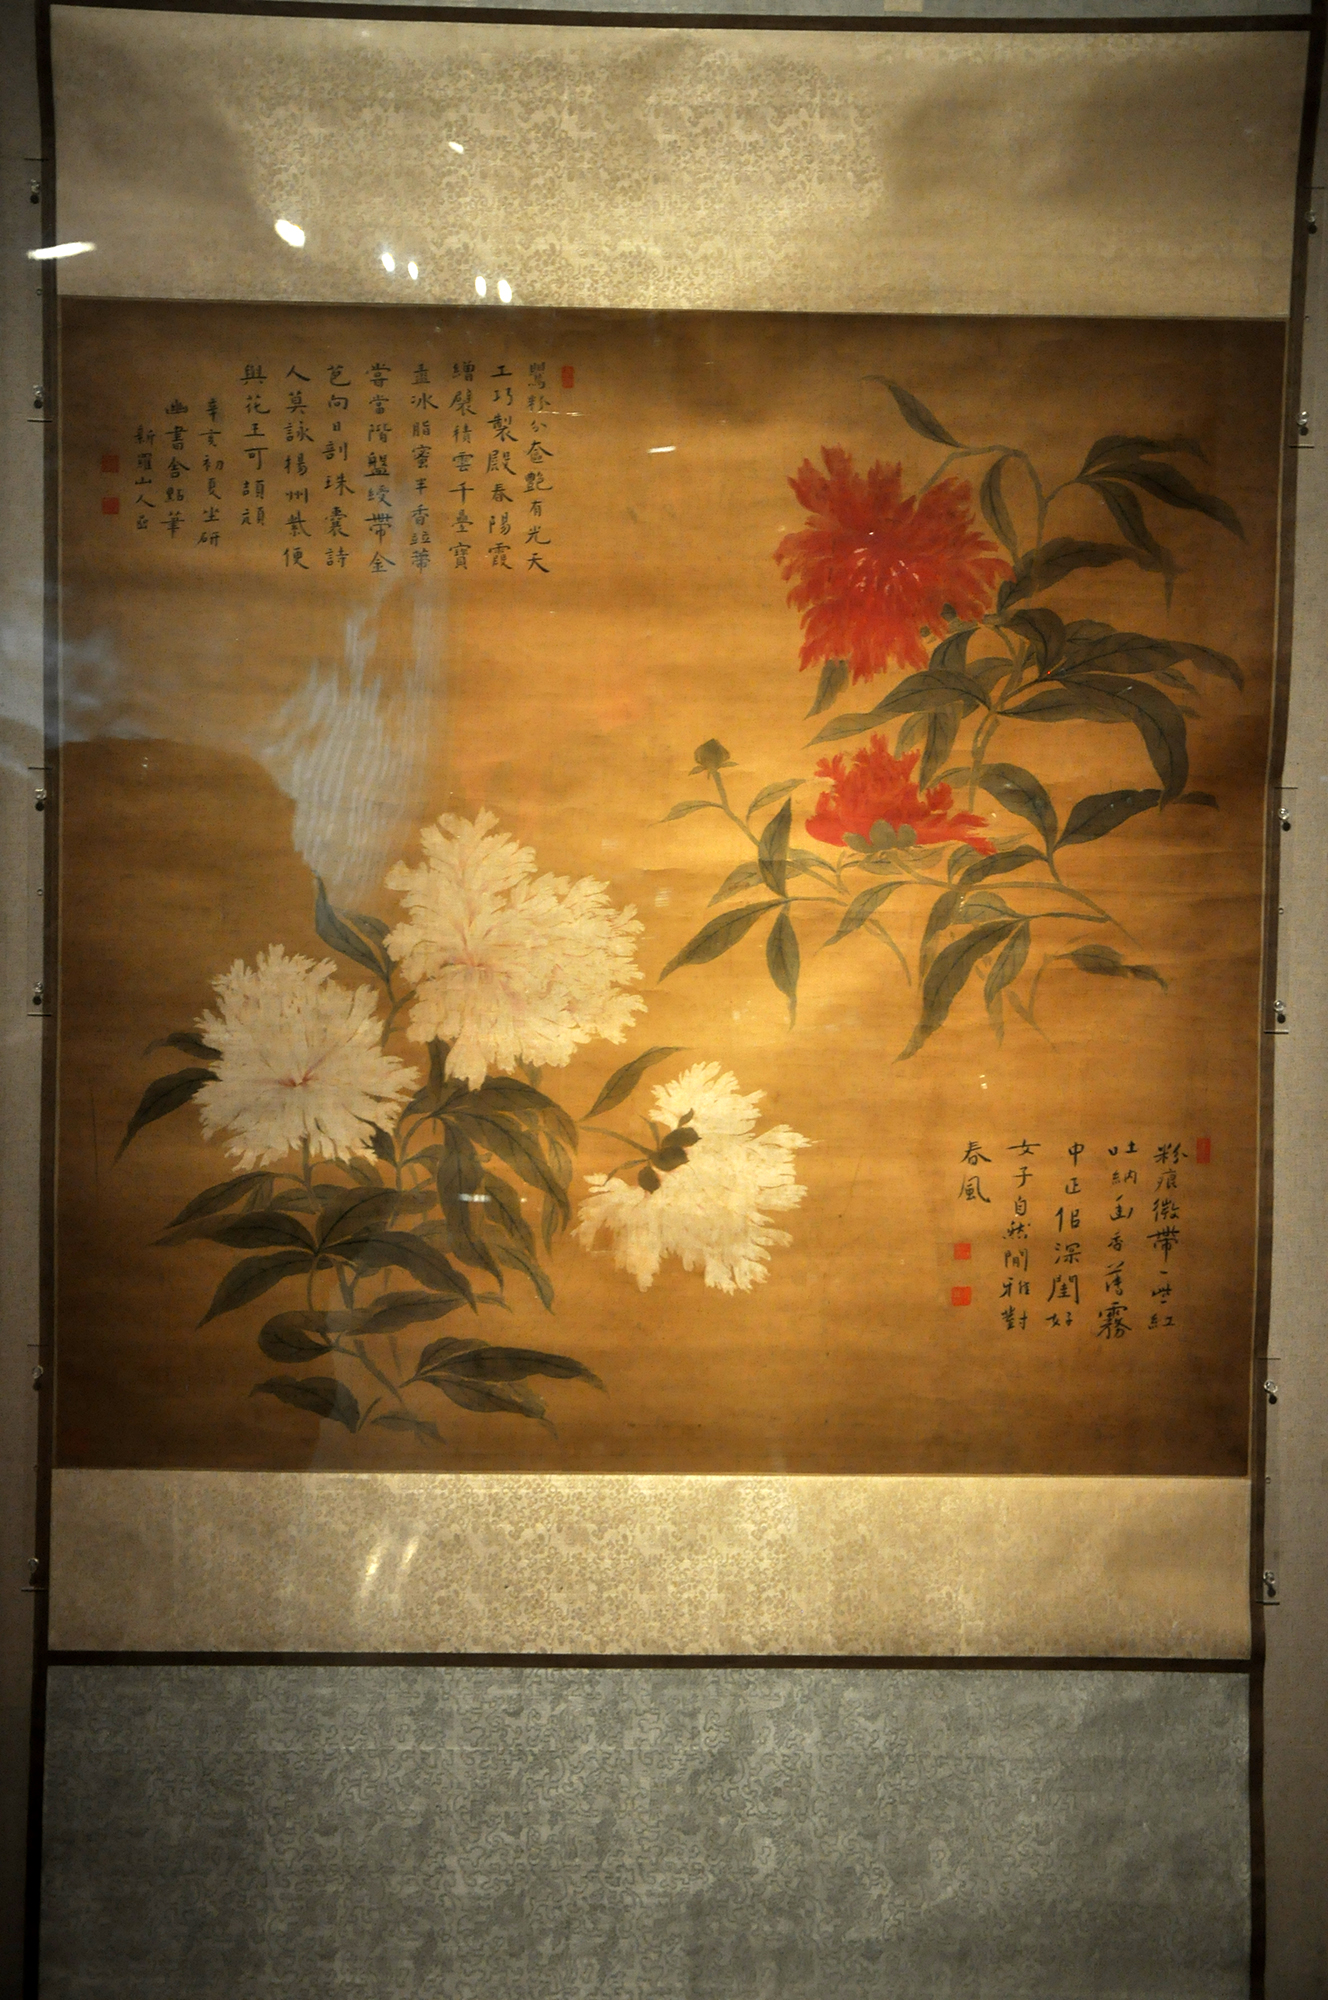 鸎粉分奩艷有光天
工巧製殿春陽霞
繒襞積雲千疊寶
盉冰脂蜜半香竝蒂
當階盤綬帶金
芭向日剖珠囊詩
人莫詠揚州紫便
與花王可頡頏
辛亥初夏坐研
幽書舍點筆
新羅山人嵒
粉痕微帶一些紅
吐納幽香薄霧
中正侣深閨好
女子自然閒雅對
春風